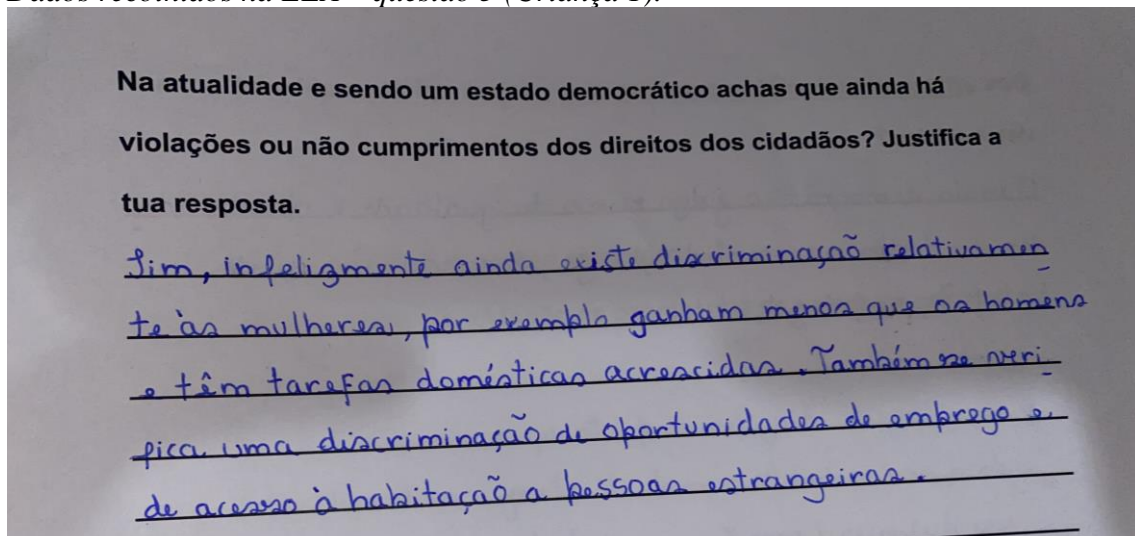 Na atualidade e sendo um estado democrático achas que ainda há
violações ou não cumprimentos dos direitos dos cidadãos? Justifica a
tua resposta.
Sim, infelizmente ainda existe discriminação relativamen
te às mulheres, por exemplo ganham menos que os homens
e têm tarefas domésticas acrescidas. Também se veri
fica uma discriminação de oportunidades de emprego e
de acesso à habitação a pessoas estrangeiras.